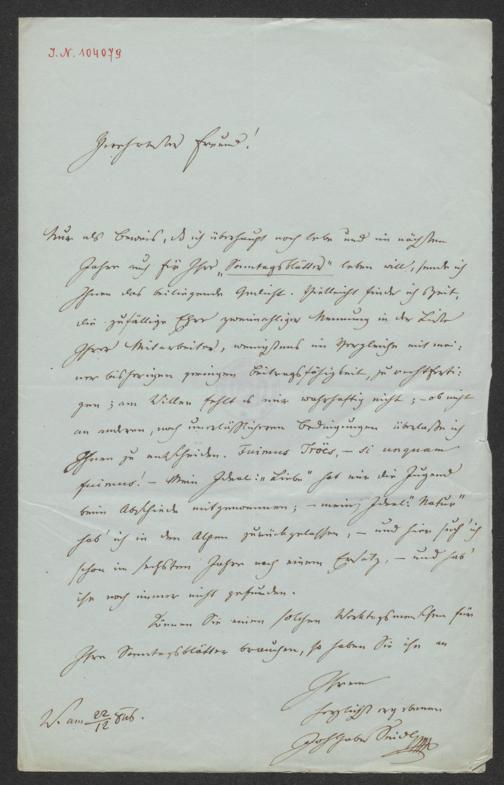 I.N. 104079
Geehrtester Freund!
Nur als Beweis, daß ich überhaupt noch lebe und im nächsten
Jahre auch für Ihre „Sonntagsblätter" leben will, sende ich
Ihnen das beiliegende Gedicht. Vielleicht finde ich Zeit,
die zufällige Ehre zweimaliger Nennung in der Liste
Ihrer Mitarbeiter, wenigstens im Vergleiche mit mei-
ner bisherigen geringen Beitragsfähigkeit, zu rechtferti-
gen; am Willen fehlt es mir wahrhaftig nicht; – ob nicht
an anderen, noch unerläßlicheren Bedingungen überlasse ich
Ihnen zu entscheiden. Fuimus Troes, – si unquam
fuimus! – Mein Ideal: „Liebe" hat mir die Jugend
beim Abschiede mitgenommen; – mein Ideal: „Natur"
hab' ich in den Alpen zurückgelassen; – und hier such' ich
schon im sechsten Jahre nach einem Ersatz, – und hab'
ihn noch immer nicht gefunden.
Können Sie einen solchen Werktagsmenschen für
Ihre Sonntagsblätter brauchen, so haben Sie ihn an
Ihrem
herzlichst ergebenen
Joh Gabr Seidl
W. am 22/12 845.